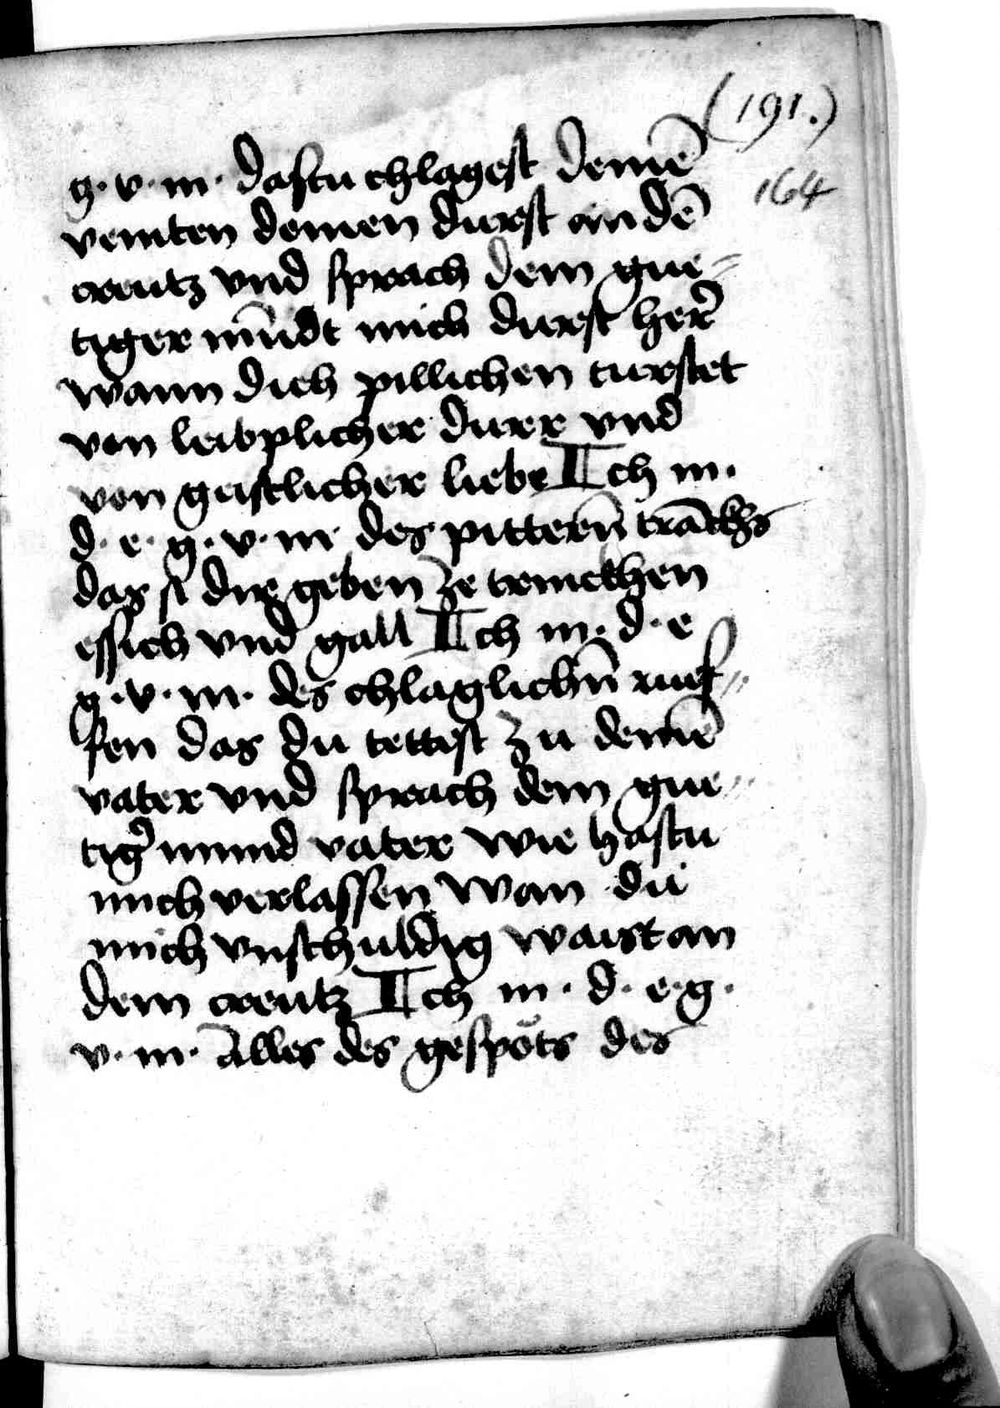 (191.)
164
g· v· m· dastu chlagest deinē
veinten deinen durst an dē
creutz vnd sprach dein gue=
tiger mūdt mich durst her̄
wann dich pillichen turstet
von leibplicher durr vnd
von geistlicher liebe Ich m·
d· e· g· v· m· des pittern̄ trāckhs
das si dir geben ze trinckhen
essich vnd gall Ich m· d· e
g· v· m· des chlaglichn̄ ruef=
fen das du tettest zu deinē
vater vnd sprach dein gue=
tiḡ mund vater wie hastu
mich verlassen wan du
mich vnschuldig waist an
dem creutz Ich m· d· e· g·
v· m· Alles des gespöts des